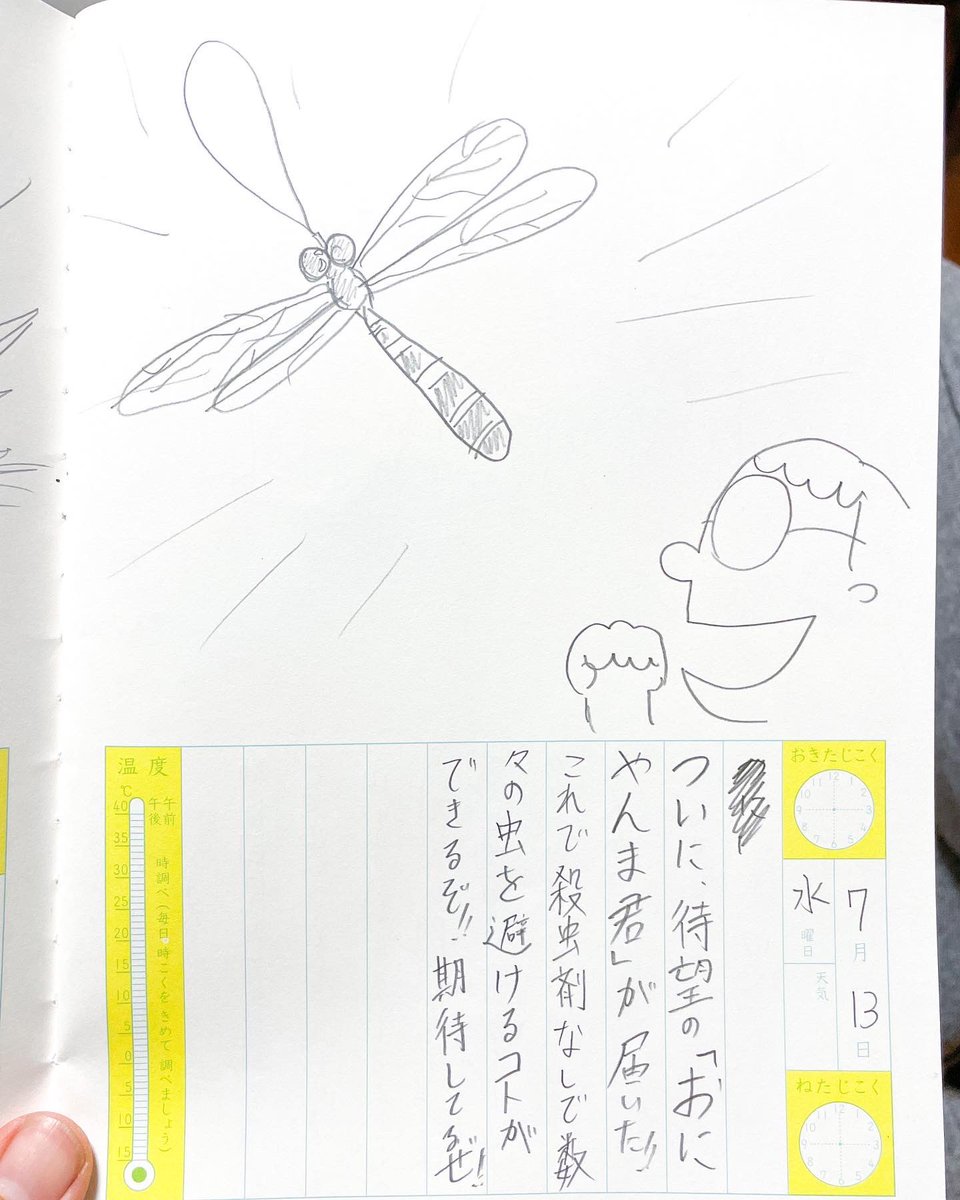 おきたじこく
12
1
2
3
4
5
6
7
8
9
10
11
7月13日
水曜日
天気
ねたじこく
12
1
2
3
4
5
6
7
8
9
10
11
ついに、待望の「おに
やんま君」が届いた!!
これで殺虫剤なしで数
々の虫を避けるコトが
できるぞ!!期待してるぜ!!
温度
℃
午前
午後
時調べ(毎日、時こくをきめて調べましょう)
40
35
30
25
20
15
10
5
0
5
10
15